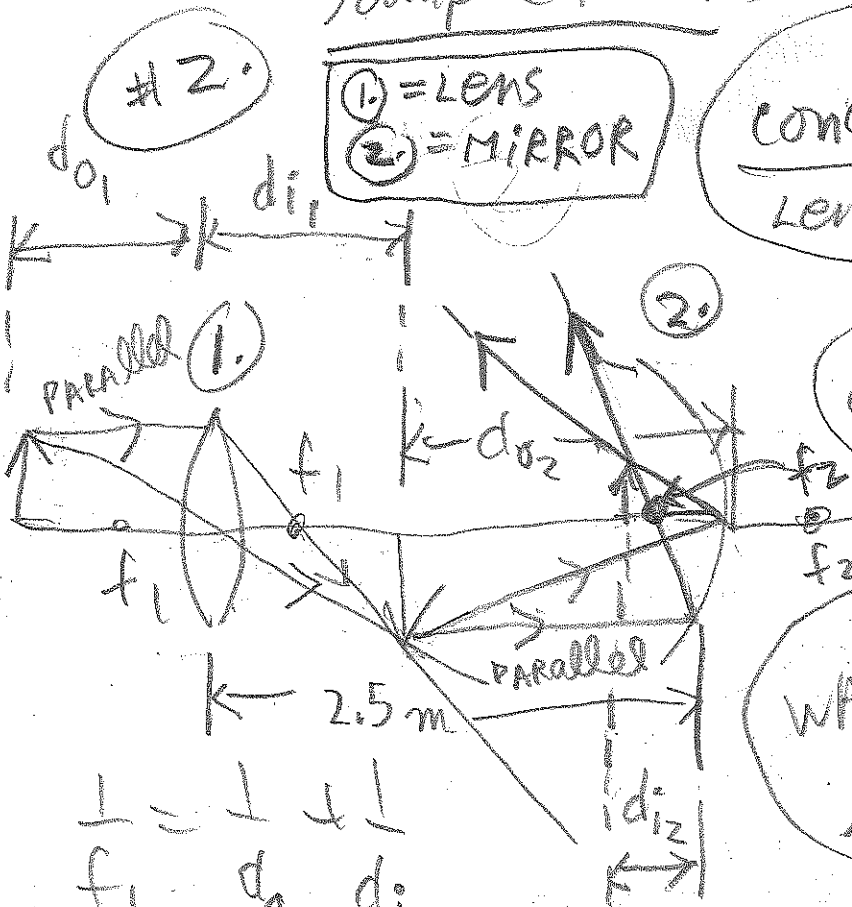 #2.
①. = LENS
②. = MIRROR
LEN
do1
di1
PARAllel
①.
②.
f1
do2
f2
f1
f2
PARAllel
2.5 m
WH
di2
1/f1 = 1/do + 1/di